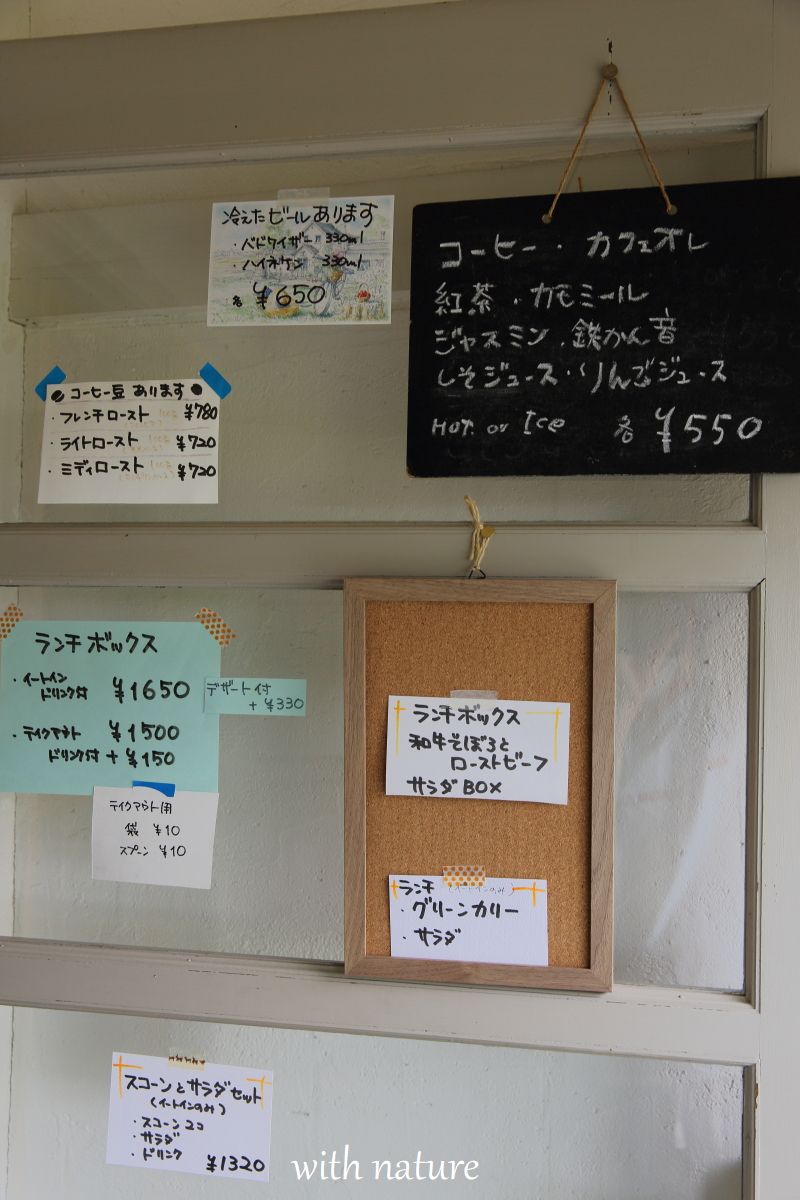 冷えたビールあります
・バドワイザー 330ml
・ハイネケン 330ml
各 ¥650
コーヒー・カフェオレ
紅茶・カモミール
ジャスミン・鉄かん音
しそジュース・りんごジュース
HOT or Ice 各 ¥550
コーヒー豆 あります
・フレンチロースト ¥780
・ライトロースト ¥720
・ミディロースト ¥720
ランチボックス
・イートイン
ドリンク付 ¥1650
デザート付
+ ¥330
・テイクアウト ¥1500
ドリンク付 + ¥150
テイクアウト用
袋 ¥10
スプーン ¥10
ランチボックス
和牛そぼろと
ローストビーフ
サラダBOX
ランチ (イートインのみ)
・グリーンカリー
・サラダ
スコーンとサラダセット
(イートインのみ)
・スコーン2コ
・サラダ
・ドリンク ¥1320
with nature